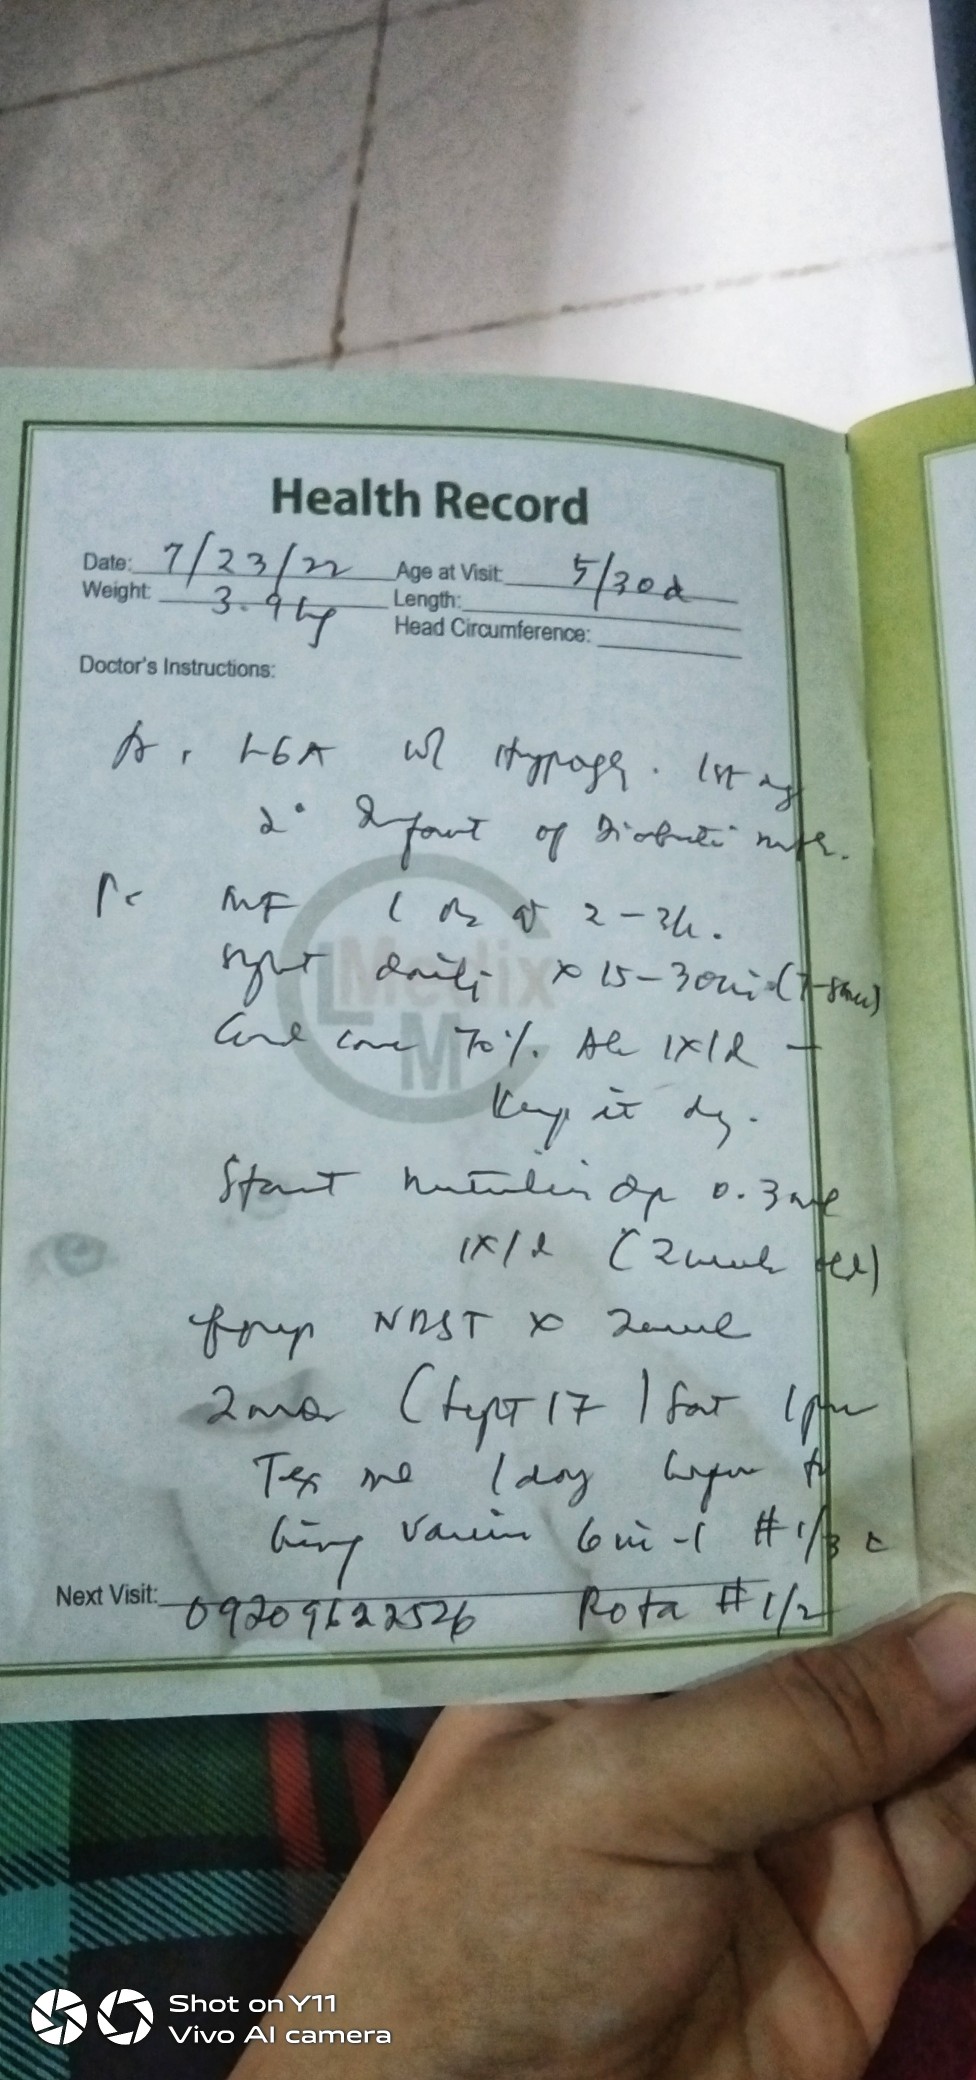 Health Record
Date: 7/23/22 Age at Visit: 5/30d
Weight: 3.9 kg Length:
Head Circumference:
Doctor's Instructions:
A: LGA w/ Hypogly. 1st
2° Infant of Diabetic
P: MF 1 oz q 2-3h.
daily x 15-30 min (7-8am)
Cord care 70% Alc 1x/d
Keep it dry.
Start Nutrilin dp 0.3 ml
1x/d (2 weeks old)
NBST x 2 week
2 mos (Sept 17) Sat 1pm
Tex me 1 day before to
bring Vaccine 6 in-1 #1/3 c
Next Visit: 09209622526 Rota #1/2
LMedix
M
Shot on Y11
Vivo AI camera